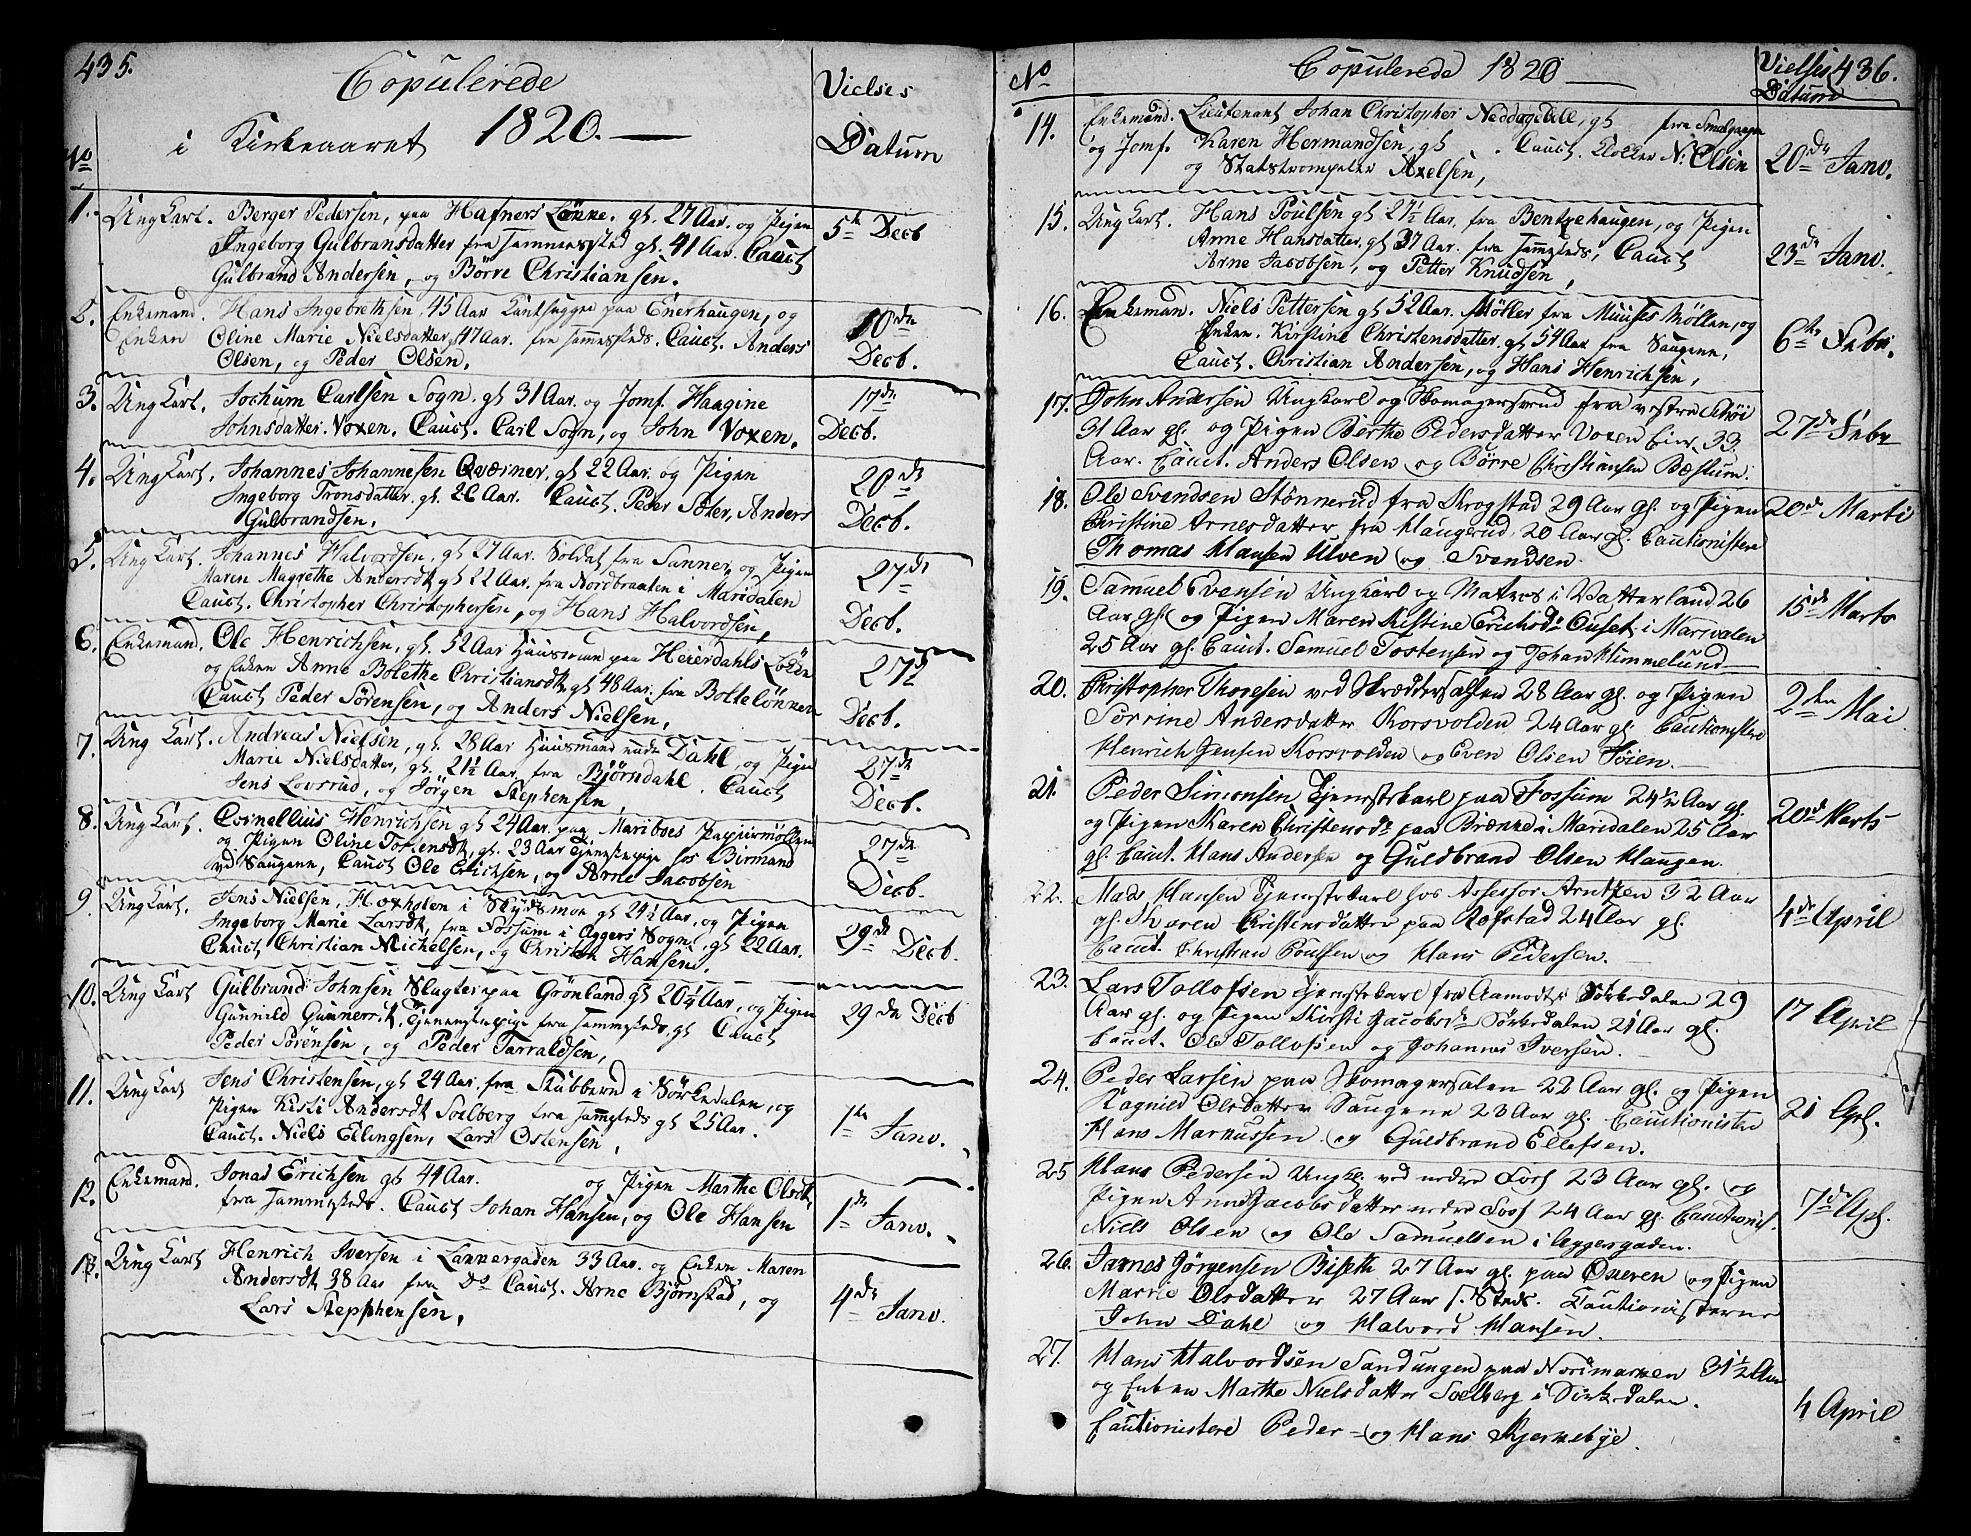 435.
Copulerede
i Kirkeaaret 1820.
No
Vielses
Datum
1. Ung Karl. Berger Pedersen, paa Hafners Løkke. gl. 27 Aar. og Pigen
Ingeborg Gulbransdatter fra Jammerstæd gl. 41 Aar. Caut
Gulbrand Andersen, og Börre Christiansen.
5te Decb
2. Enkemand. Hans Ingebrethsen, 45 Aar paa Enerhaugen, og
Enken Oline Marie Nielsdatter, 47 Aar. fra Jammersteds. Caut. Anders
Olsen, og Peder Olsen.
10de
Decb.
3. Ung Karl. Jochum Carlsen Sogn. gl. 31 Aar. og Jomf. Haagine
Johnsdatter. Voxen. Caut. Carl Sogn, og John Voxen.
17de
Decb.
4. Ung Karl. Johannes Johannesen Qværner, gl. 22 Aar. og Pigen
Ingeborg Tronsdatter, gl. 26 Aar. Caut. Peder Soter, Anders
Gulbrandsen.
20de
Decb.
5. Ung Karl. Johannes Halvordsen, gl. 27 Aar. Soldat fra Sanner, og Pigen
Maren Magrethe Andersdt. gl. 22 Aar. fra Nordbraaten i Maridalen
Caut. Christopher Christophersen, og Hans Halvordsen,
27de
Decb.
6. Enkemand. Ole Henrichsen, gl. 52 Aar Huusmand paa Heierdahls Løkken
og Enken Anne Bolethe Christiansdt. gl. 48 Aar. fra Bolteløkken
Caut Peder Sørensen, og Anders Nielsen,
27de
Decb.
7. Ung Karl. Andreas Nielsen, gl. 28 Aar Huusmand under Dahl, og Pigen
Marie Nielsdatter, gl. 21½ Aar. fra Bjørndahl. Caut
Jens Lovsrud, og Jørgen Stephensen,
27de
Decb.
8. Ung Karl. Cornellius Henrichsen gl 24 Aar. paa Mariboes Papiirmøllen
og Pigen Oline gl. 23 Aar Tjenestepige hos Birmand
ved Saugene, Caut Ole Erichsen, og Arne Jacobsen
27de
Decb.
9. Ung Karl. Jens Nielsen, i Skydsmoe gl 24½ Aar, og Pigen
Ingeborg Marie Larsdt. fra Fossum i Aggers Sogn. gl 22 Aar.
Caut Christian Michelsen, og Hansen.
29de Decb.
10. Ung Karl Gulbrand Johnsen Slagter paa Grønland gl 20½ Aar, og Pigen
Gunnild Gunnersdt. Tjenestepige fra Jammesteds, gl Caut
Peder Sørensen, og Peder Tarraldsen,
29de Decb
11. Ung Karl Jens Christensen, gl 24 Aar. fra Stubberud i Sørkedalen, og
Pigen Kisti Andersdt Solberg fra Jammesteds gl 25 Aar.
Caut. Niels Ellingsen, Lars Ostensen,
1te Janv.
12. Enkemand. Jonas Erichsen gl 44 Aar. og Pigen Marthe Olsdt.
fra Jammesteds. Caut Johan Hansen, og Ole Hansen
1de Janv.
13. Ung Karl Henrich Iversen i Lakkergaden 33 Aar. og Enken Maren
Andersdt 38 Aar fra Do Caut. Arne Bjørnstad, og
Lars Stepphensen,
4de Janv.
436.
No
Copulerede 1820
Vielses
Datum
14. Enkemand. Lieutenant Johan Christopher gl fra Smalgangen
og Jomf. Karen Hermandsen, gl Caut. Klokker N: Olsen
og Stadstrompeter Axelsen,
20de Janv.
15. Ung Karl. Hans Poulsen gl 27½ Aar. fra Bentzehaugen, og Pigen
Anne Hansdatter, gl 37 Aar. fra Jammesteds, Caut
Arne Jacobsen, og Petter Knudsen,
23de Janv.
16. Enkemand. Niels Pettersen gl 52 Aar. Møller fra Muuses Møllen, og
Enken. Kirstine Christensdatter. gl 54 Aar fra Saugene,
Caut. Christian Andersen, og Hans Henrichsen,
6te Febr.
17. John Andersen Ungkarl og Skomagersvend fra vestre
31 Aar gl. og Pigen Berthe Pedersdatter Voxen Eier 33
Aar. Caut. Anders Olsen og Børre Christiansen Bæstum.
27de Febr
18. Ole Svendsen Stønnerud fra Skrogstad 29 Aar gl. og Pigen
Christine Arnesdatter fra Haugerud, 20 Aar gl. Cautionistere
Thomas Hansen Ulven og Svendsen.
20de Marti
19. Samuel Svensen Ungkarl og Matros i Vatterland 26
Aar gl. og Pigen Maren Kistine Erichsdr. Ouset i Marivalen
25 Aar gl. Caut. Samuel Tostensen og Johan Himmelund
15de Marts
20. Christopher Thoresen ved Skreddersalen 28 Aar gl. og Pigen
Sørrine Andersdatter Korsvolden 24 Aar gl. Cautionistere
Henrich Jensen Korsvolden og Even Olsen Høien.
2den Mai
21. Peder Simonsen Tjenestekarl paa Fossum 24½ Aar gl.
og Pigen Karen Christensdr. paa Brænke i Maridalen 25 Aar
gl. Caut. Hans Andersen og Guldbrand Olsen Haugen.
20de Marts
22. Mads Hansen Tjenestekarl hos Assessor Arntzen 32 Aar
gl. Karen Christensdatter paa Refstad 24 Aar gl.
Caut. Christian Poulsen og Hans Pedersen.
4de April
23. Lars Tollofsen Tjenestekarl fra Aamodt i Sørkedalen 29
Aar gl. og Pigen Kirsti Jacobsdr. Sørkedalen 21 Aar gl.
Caut. Ole Tollofsen og Johannes Iversen.
17 April
24. Peder Larsen paa Skomagersalen 22 Aar gl. og Pigen
Ragnild Olsdatter Saugene 23 Aar gl. Cautionister
Hans Markussen og Guldbrand Ellefsen.
21 Apl.
25 Hans Pedersen Ungkl. ved nedre Foss 23 Aar gl. og
Pigen Anne Jacobsdatter nedre Foss 24 Aar gl. Cautionist.
Niels Olsen og Ole Samuelsen i Aggersgaden.
7de Apl.
26. Jarnes Jørgensen Bisseth 27 Aar gl. paa Overen og Pigen
Marrie Olsdatter 27 Aar s. Steds. Cautionisterne
John Dahl og Halvord Hansen.
27. Hans Halvordsen Sandungen paa Nordmarken 31½ Aar
og Enken Marthe Nielsdatter Solberg i Sørkedalen.
Cautionistere Peder og Hans Bjerkebye.
4 April